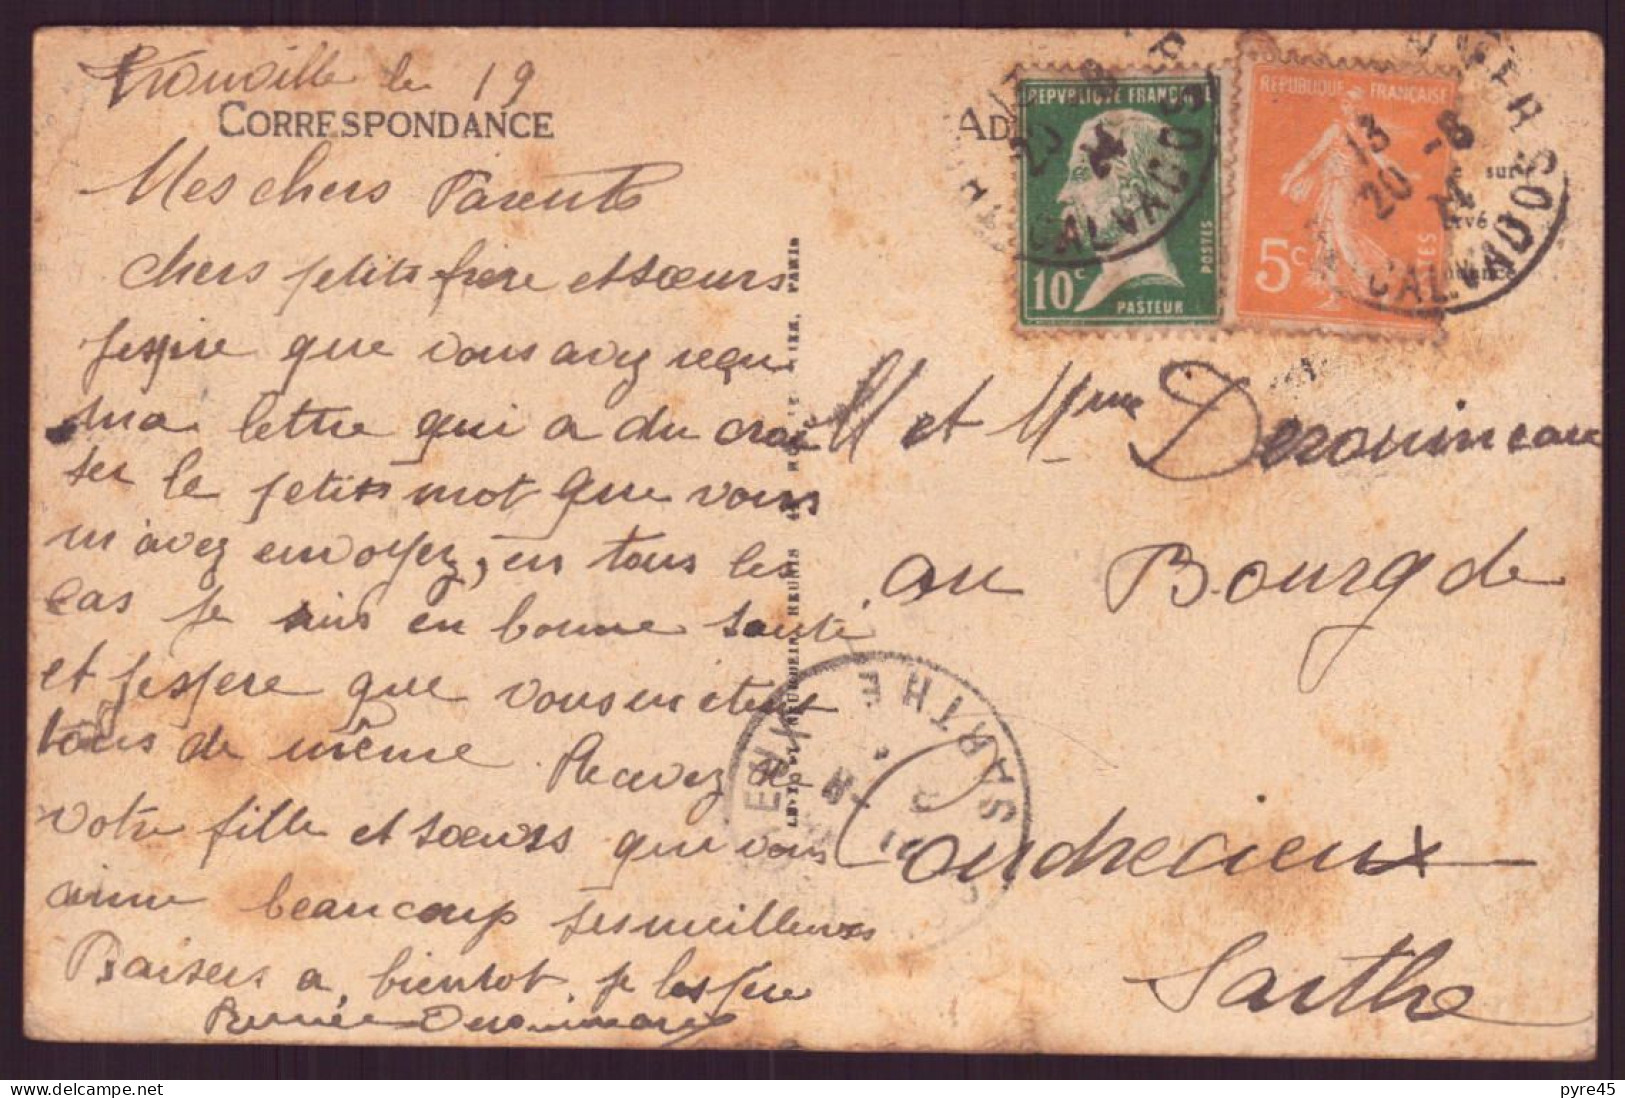 Trouville le 19
CORRESPONDANCE
Mes chers Parents
chers petits frere et sœurs
jespire que vous avez reçu
ma lettre qui a du croi
ser le petits mot que vous
m'avez envoyez, en tous les
cas je suis en bonne santé
et jespere que vous en etes
tous de même. Recevez de
votre fille et sœurs qui vous
aime beaucoup ses meilleures
Baisers a bientot je lespere
Derouineau
REPVBLIQUE FRANÇAISE
10c
POSTES
PASTEUR
REPUBLIQUE FRANÇAISE
5c
13
-8
20
CALVADOS
CALVADOS
sur
M et Mme Derouineau
au Bourg de
Coudrecieux
Sarthe
SARTHE
PARIS
pyre45